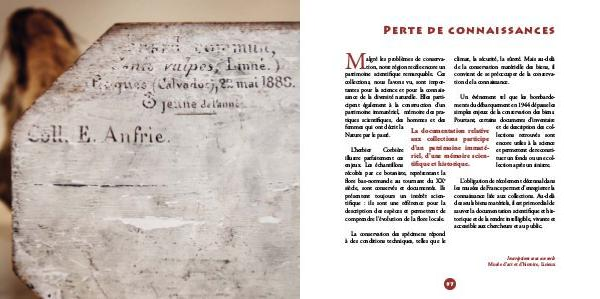 vulpes, Linné.)
(Calvados), 22 mai 1886.
jeune de l'année
Coll. E. Anfrie.
PERTE DE CONNAISSANCES
Malgré les problèmes de conserva-
tion, notre région recèle encore un
patrimoine scientifique remarquable. Ces
collections, nous l'avons vu, sont impor-
tantes pour la science et pour la connais-
sance de la diversité naturelle. Elles parti-
cipent également à la construction d'un
patrimoine immatériel, mémoire des pra-
tiques scientifiques, des hommes et des
femmes qui ont décrit la
Nature par le passé.
L'herbier Corbière
illustre parfaitement ces
enjeux. Les échantillons
récoltés par ce botaniste, représentant la
flore bas-normande au tournant du XXe
siècle, sont conservés et documentés. Ils
présentent toujours un intérêt scien-
tifique : ils sont une référence pour la
description des espèces et permettent de
comprendre l'évolution de la flore locale.
La conservation des spécimens répond
à des conditions techniques, telles que le
La documentation relative
aux collections participe
d'un patrimoine immaté-
riel, d'une mémoire scien-
tifique et historique.
climat, la sécurité, la sûreté. Mais au-delà
de la conservation matérielle des biens, il
convient de se préoccuper de la conserva-
tion de la connaissance.
Un événement tel que les bombarde-
ments du débarquement en 1944 dépasse les
simples enjeux de la conservation des biens.
Pourtant, certains documents d'inventaire
et de description des col-
lections retrouvés sont
encore utiles à la science
et permettent de reconsti-
tuer un fonds ou une col-
lection après un sinistre.
L'obligation de récolement décennal dans
les musées de France permet d'enregistrer la
connaissance liée aux collections. Au-delà
des seuls biens matériels, il est primordial de
sauver la documentation scientifique et his-
torique et de la rendre intelligible, vivante et
accessible aux chercheurs et au public.
Inscriptions sous un socle
Musée d'art et d'histoire, Lisieux
97